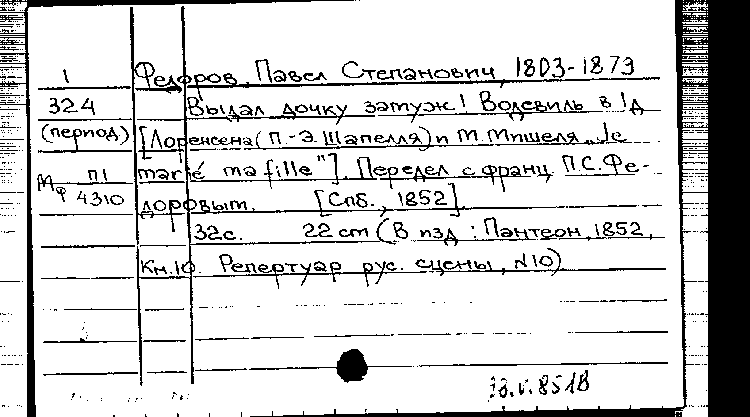 1 Федоров, Павел Степанович, 1803-1873
324 Выдал дочку замуж! Водевиль в 1 д
(период) [Лоренсена (П.-Э. Шапелля) и М. Мишеля „Je
Мф П1 4310 marié ma fille"]. Передел. с франц. П.С. Фе-
доровым. [Спб., 1852].
32с. 22 cm (В изд.: Пантеон, 1852,
Кн.10. Репертуар рус. сцены, №10)